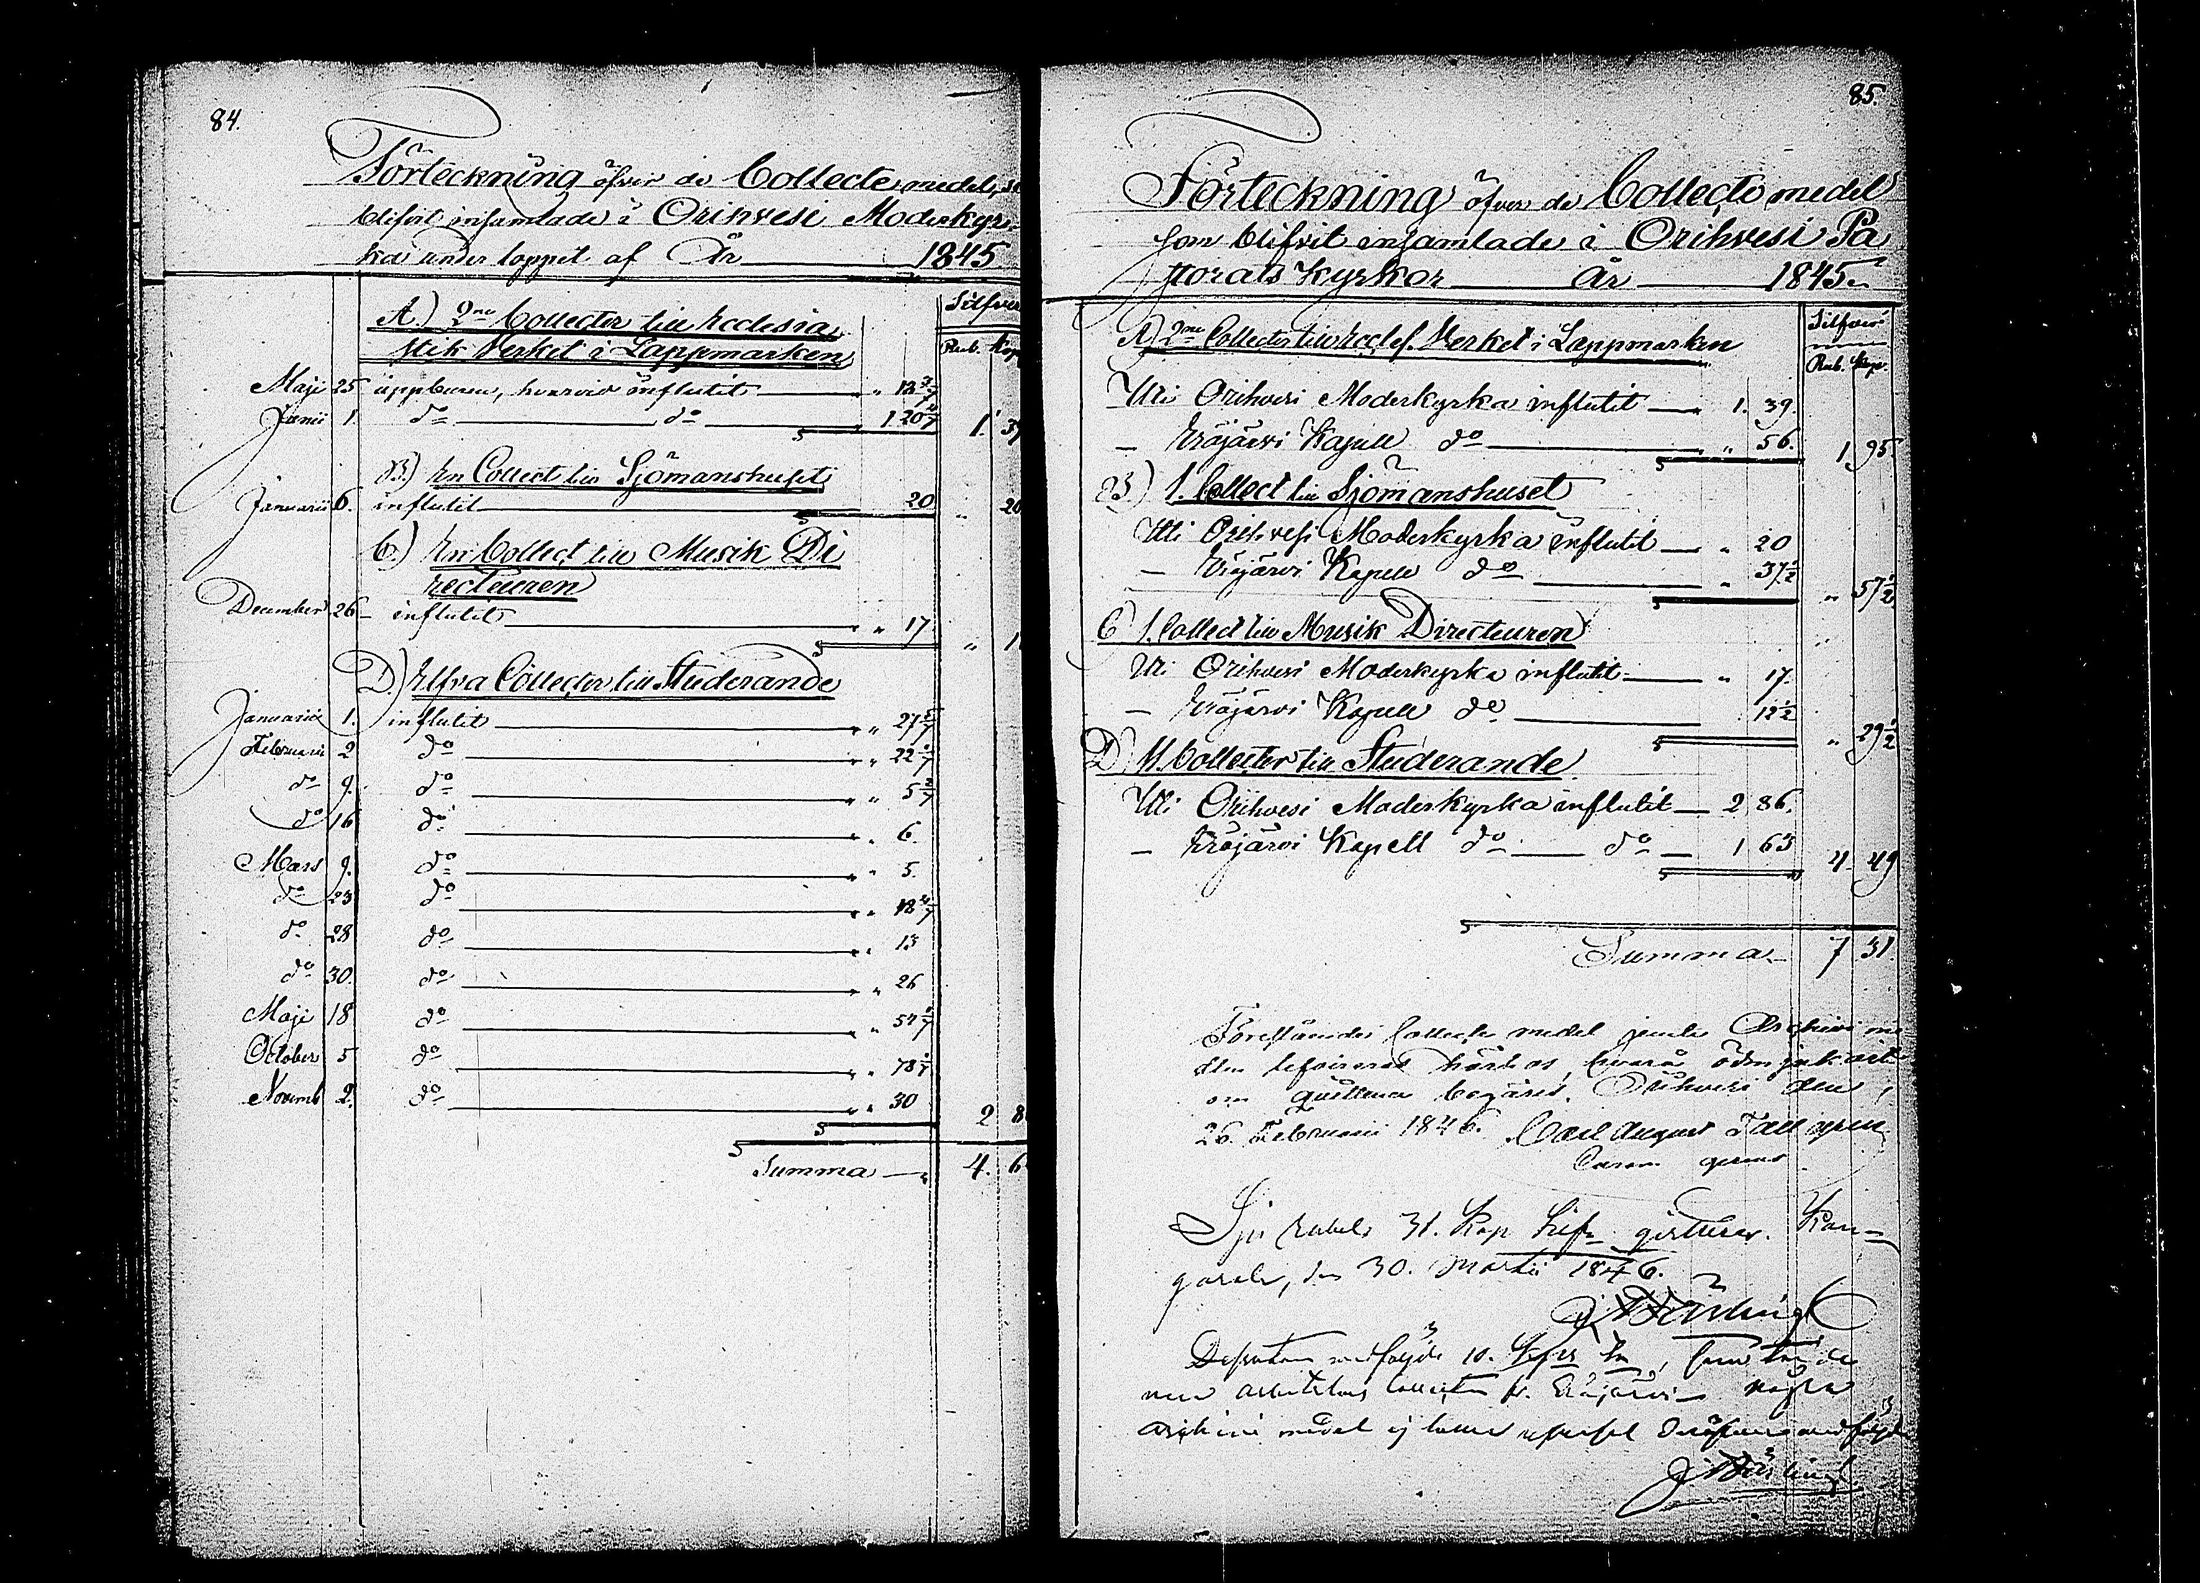 84.
Förteckning öfver de Collecte medel, so
blifvit insamlade i Orihvesi Moderkyr-
ka under loppet af År 1845
Silfver
Rub. Kop
A.) 2ne Collecter till Ecclesia
stik Verket i Lappmarken
Maji 25 uppburen, hvarvid influtit „ 18 3/7
Junii 1. do do 1 20 4/7 1. 39
B.) En Collect till Sjömanshuset
Januarii 6. influtit 20 „ 20
C.) En Collect till Musik Di
recteuren
December 26 influtit „ 17 „ 1
D.) Elfva Collecter till Studerande
Januarii 1. influtit „ „ 27 5/7
Februarii 2 do „ „ 22
do 9. do „ „ 5 2/7
do 16 do „ „ 6.
Mars 9. do „ „ 5.
do 23 do „ „ 18 4/7
do 28 do „ „ 13
do 30. do „ „ 26
Maji 18 do „ 54
October 5 do „ „ 78
Novemb 2. do „ „ 30 2 8
Summa 4. 6
85.
Förteckning öfver de Collecte medel
som blifvit insamlade i Orihvesi Pa
storats Kyrkor År 1845.
Silfver
Rub. Kop.
A) 2ne Collecter till Eccles. Verket i Lappmarken
Uti Orihvesi Moderkyrka influtit „ 1. 39.
— Eräjärvi Kapell do „ 56. 1 95
B) 1. Collect till Sjömanshuset
Uti Orihvesi Moderkyrka influtit „ 20
— Eräjärvi Kapell do „ 37 1/2 „ 57 1/2
C) 1. Collect till Musik Directeuren
Uti Orihvesi Moderkyrka influtit „ 17.
— Eräjärvi Kapell do 12 1/2 „ 29 1/2
D) 11. Collecter till Studerande
Uti Orihvesi Moderkyrka influtit 2 86.
— Eräjärvi Kapell do do 1 63 4 49
Summa 7 31.
Förestående Collecte medel jemte Archivi me-
del hvarå ödmjukast
om quittence begäres. Orihvesi den
26 Februarii 1846. Carl August
Curam gerens
Sju Rubel 31. Kop Silfr qvitteras. Kan-
gasala, den 30. Martii 1846.
Dessutom medföljde 10. Kop
Collecten fr. Eräjärvi några
archivi medel ej